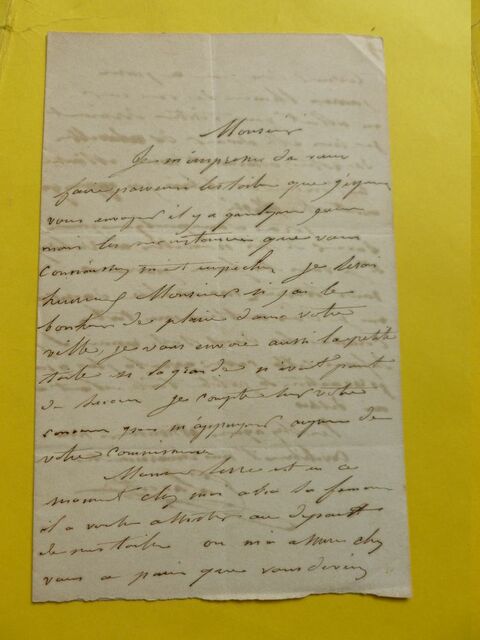 Monsieur
Je m'empresse de vous
faire parvenir les toiles que
vous envoyer il y a quelque
mais les circonstances que vous
connaissez m'ont empecher Je serai
heureux Monsieur si j'ai le
bonheur de plaire dans votre
ville, je vous envoie aussi la petite
toile si la grande n'avait pas
de succes Je compte sur votre
concour pour m'appuyer aupres de
votre Commission
Monsieur est en ce
moment chez moi avec sa femme
il a voulu assister au depart
de mes toiles on m'a assure chez
vous a paris que vous